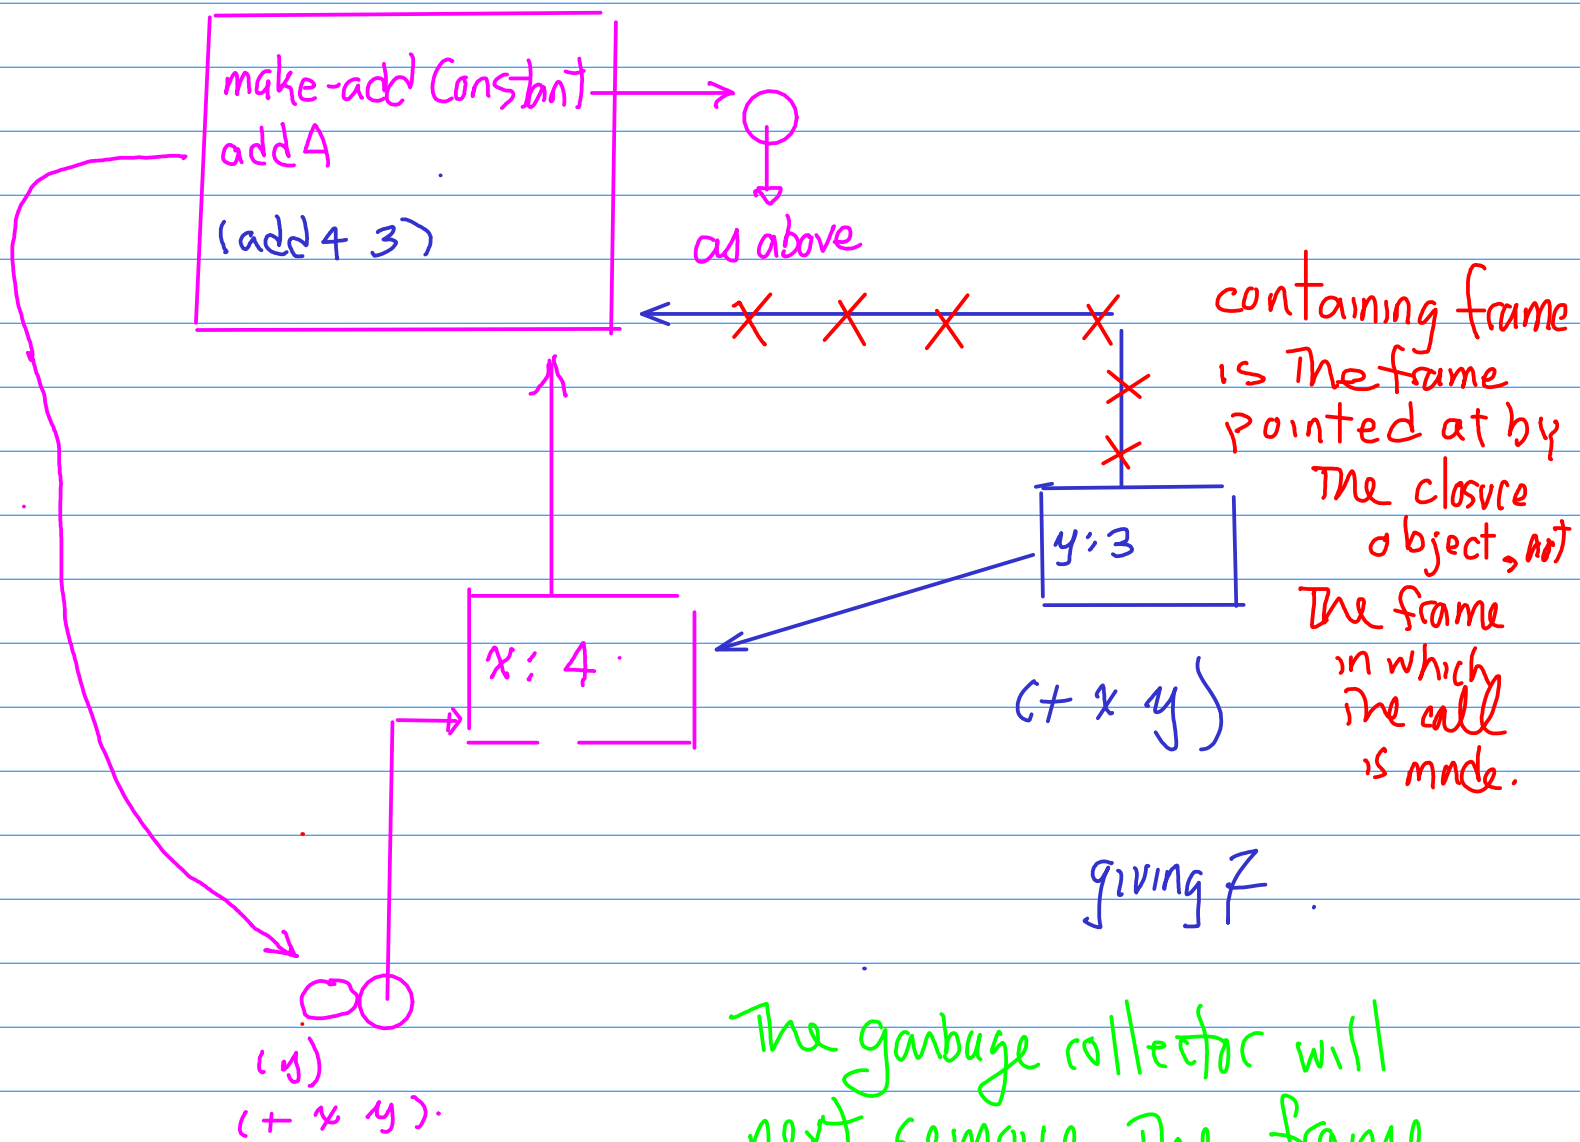 make-add Constant
add 4
(add 4 3)
as above
containing frame
is The frame
pointed at by
The closure
object, not
The frame
in which
the call
is made.
y: 3
x: 4
(+ x y)
giving 7.
(y)
(+ x y).
The garbage collector will
not remove The frame